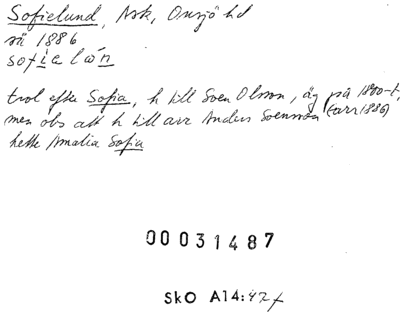 Sofielund, Ask, Onsjö hd
sä 1886
sofielón
trol efter Sofia, h till Sven Olsson, äg på 1800-t,
men obs att h till arr Anders Svensson (arr 1886)
hette Amalia Sofia
00031487
SkO A14: